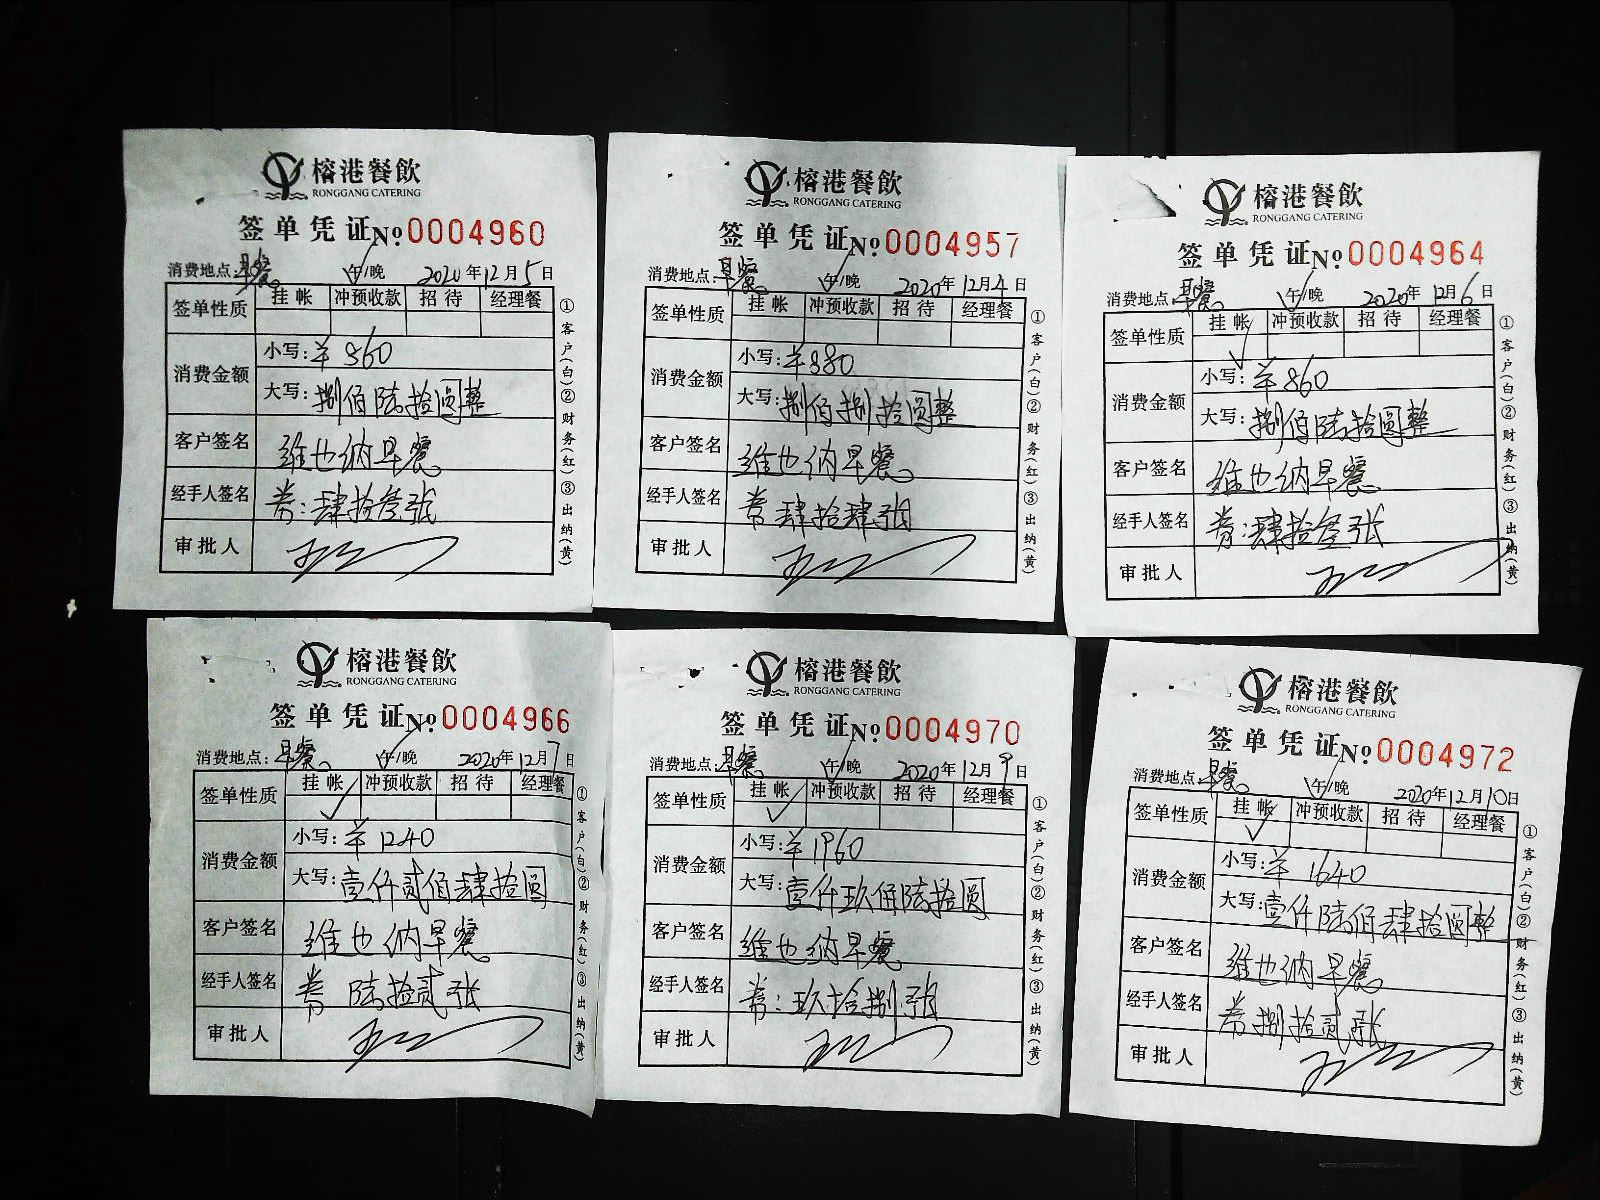 榕港餐飲
RONGGANG CATERING
签单凭证 No 0004960
消费地点：早餐 午/晚 2020年12月5日
签单性质 挂帐 冲预收款 招待 经理餐
消费金额 小写：¥860
大写：捌佰陆拾圆整
客户签名 维也纳早餐
经手人签名 券：肆拾叁张
审批人
①客户(白)②财务(红)③出纳(黄)
榕港餐飲
RONGGANG CATERING
签单凭证 No 0004957
消费地点：早餐 午/晚 2020年12月4日
签单性质 挂帐 冲预收款 招待 经理餐
消费金额 小写：¥880
大写：捌佰捌拾圆整
客户签名 维也纳早餐
经手人签名 券 肆拾肆张
审批人
①客户(白)②财务(红)③出纳(黄)
榕港餐飲
RONGGANG CATERING
签单凭证 No 0004964
消费地点：早餐 午/晚 2020年12月6日
签单性质 挂帐 冲预收款 招待 经理餐
消费金额 小写：¥860
大写：捌佰陆拾圆整
客户签名 维也纳早餐
经手人签名 券：肆拾叁张
审批人
①客户(白)②财务(红)③出纳(黄)
榕港餐飲
RONGGANG CATERING
签单凭证 No 0004966
消费地点：早餐 午/晚 2020年12月7日
签单性质 挂帐 冲预收款 招待 经理餐
消费金额 小写：¥1240
大写：壹仟贰佰肆拾圆
客户签名 维也纳早餐
经手人签名 券 陆拾贰张
审批人
①客户(白)②财务(红)③出纳(黄)
榕港餐飲
RONGGANG CATERING
签单凭证 No 0004970
消费地点：早餐 午/晚 2020年12月9日
签单性质 挂帐 冲预收款 招待 经理餐
消费金额 小写：¥1960
大写：壹仟玖佰陆拾圆
客户签名 维也纳早餐
经手人签名 券：玖拾捌张
审批人
①客户(白)②财务(红)③出纳(黄)
榕港餐飲
RONGGANG CATERING
签单凭证 No 0004972
消费地点：早餐 午/晚 2020年12月10日
签单性质 挂帐 冲预收款 招待 经理餐
消费金额 小写：¥1640
大写：壹仟陆佰肆拾圆整
客户签名 维也纳早餐
经手人签名 券捌拾贰张
审批人
①客户(白)②财务(红)③出纳(黄)